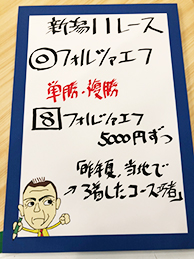 新潟11レース
◎フォルツァエフ
単勝・複勝
8 フォルツァエフ
5000円ずつ
「昨年夏、当地で
→3着したコース巧者」